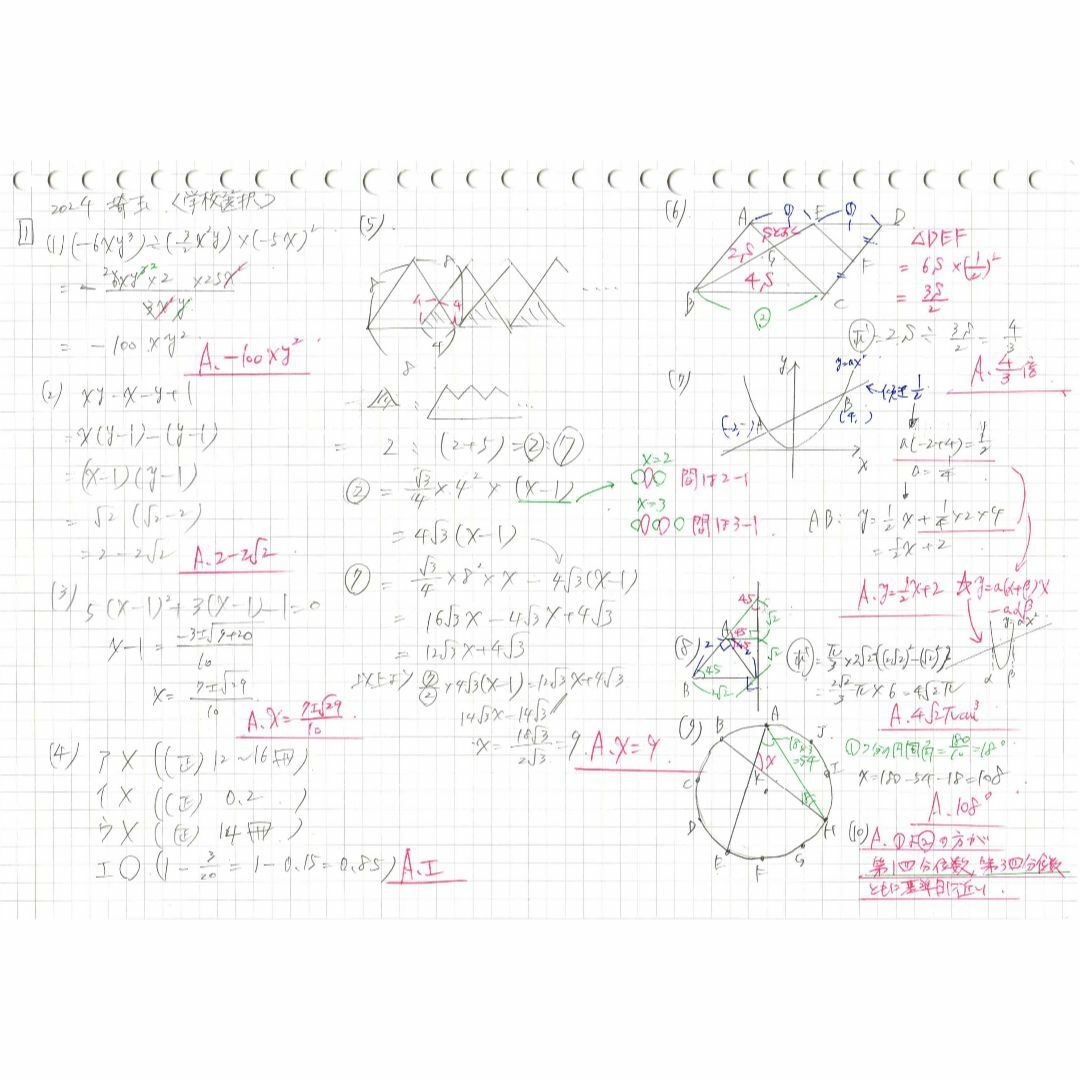 2024 埼玉 (学校選択)
1
(1) (-6xy³)÷(3/2 x²y)×(-5x)²
= - 6xy³×2 ×25x² / 3x²y
= -100xy²
A. -100xy²
(2) xy-x-y+1
=x(y-1)-(y-1)
=(x-1)(y-1)
=√2 (√2-2)
=2-2√2
A. 2-2√2
(3) 5(x-1)²+3(x-1)-1=0
x-1 = -3±√9+20 / 10
x= 7±√29 / 10
A. x= 7±√29 / 10
(4) ア× ((正) 12~16冊)
イ× ((正) 0.2 )
ウ× ((正) 14冊 )
エ○ (1- 3/20 = 1-0.15=0.85)
A. エ
(5).
8
8
8
4
4
4
.....
:
...
= 2 : (2+5)=②:⑦
② = √3/4 ×4²×(x-1)
= 4√3(x-1)
x=2
間は2-1
x=3
間は3-1
⑦ = √3/4 ×8²×x - 4√3(x-1)
= 16√3x-4√3x+4√3
= 12√3x+4√3
以上より 7/2 ×4√3(x-1)=12√3x+4√3
14√3x-14√3
∴x= 18√3 / 2√3 =9.
A. x=9
(6)
A ① E ① D
Sとおく
2S
G
4S
F
B
②
C
△DEF
= 6S×(1/2)²
= 3S/2
(求)=2S÷ 3S/2 = 4/3
A. 4/3倍
(7)
y
y=ax²
←傾き 1/2
B
(4, )
(-2, )
A
x
a(-2+4)=1/2
a=1/4
AB: y=1/2 x+1/4×2×4
=1/2 x+2
A. y=1/2 x+2
☆y=a(α+β)x
-aαβ
y=ax²
α β
(8)
45
√2
A
45
45
2
2
√2
45
B
√2
(求)=π/3 ×2√2{(2√2)²-(√2)²}
= 2√2/3 π×6=4√2π
A. 4√2πcm³
(9)
A
B
C
D
E
F
G
H
I
J
K
x
18×3
=54
18
①つ分の円周角=180/10=18°
x=180-54-18=108
A. 108°
(10)
A. ①より②の方が
第1四分位数、第3四分位数
ともに基準日に近い.